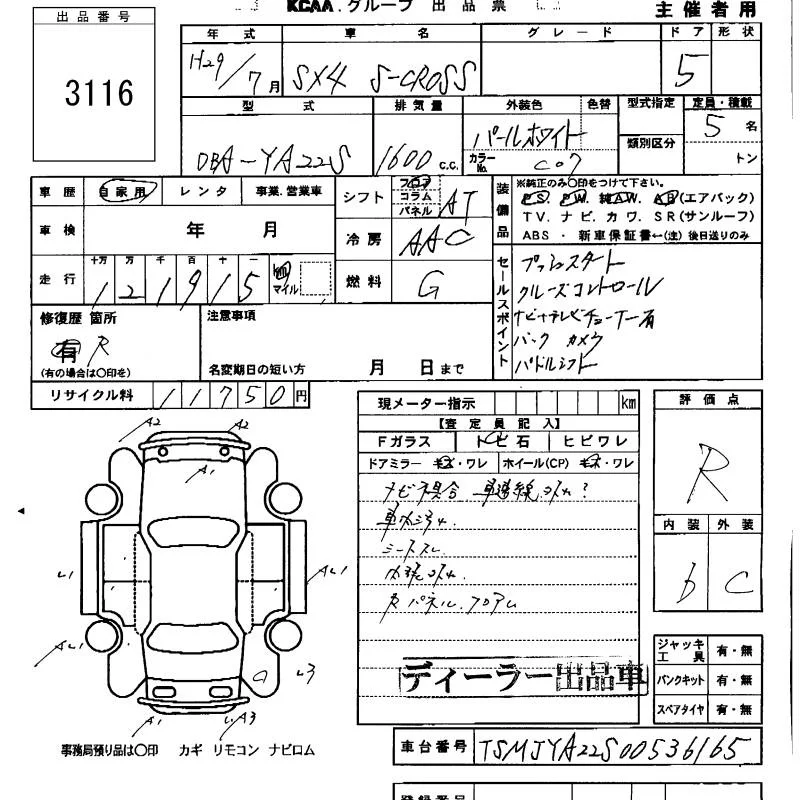 KCAA.グループ 出品票
主催者用
出品番号
3116
年式 車名 グレード ドア 形状
H29/7月 SX4 S-CROSS 5
型式 排気量 外装色 色替 型式指定 定員・積載
DBA-YA22S 1600 C.C. パールホワイト 類別区分 5名
カラーNo. C07 トン
車歴 自家用 レンタ 事業.営業車
シフト フロア コラム パネル AT
装備品
※純正のみ〇印をつけて下さい。
P.S. P.W. 純A.W. A.B(エアバック)
T.V. ナビ. カワ. S.R(サンルーフ)
ABS ・ 新車保証書←(注)後日送りのみ
車検 年 月
冷房 AAC
走行 十万 万 千 百 十 一
121915 km マイル
燃料 G
セールスポイント
プッシュスタート
クルーズコントロール
ナビ+テレビチューナー有
バック カメラ
パドルシフト
修復歴 箇所
有 R
(有の場合は〇印を)
注意事項
名変期日の短い方 月 日まで
リサイクル料 11750円
現メーター指示 km
【査定員記入】
Fガラス トビ石 ヒビワレ
ドアミラー キズ・ワレ ホイール(CP) キズ・ワレ
評価点
R
内装 外装
b C
ナビ不具合
シートスレ
ディーラー出品車
ジャッキ工具 有・無
パンクキット 有・無
スペアタイヤ 有・無
A2 A2
A1
A1
A1
A1 A3
事務局預り品は〇印 カギ リモコン ナビロム
車台番号 TSMJYA22S00536165
登録番号